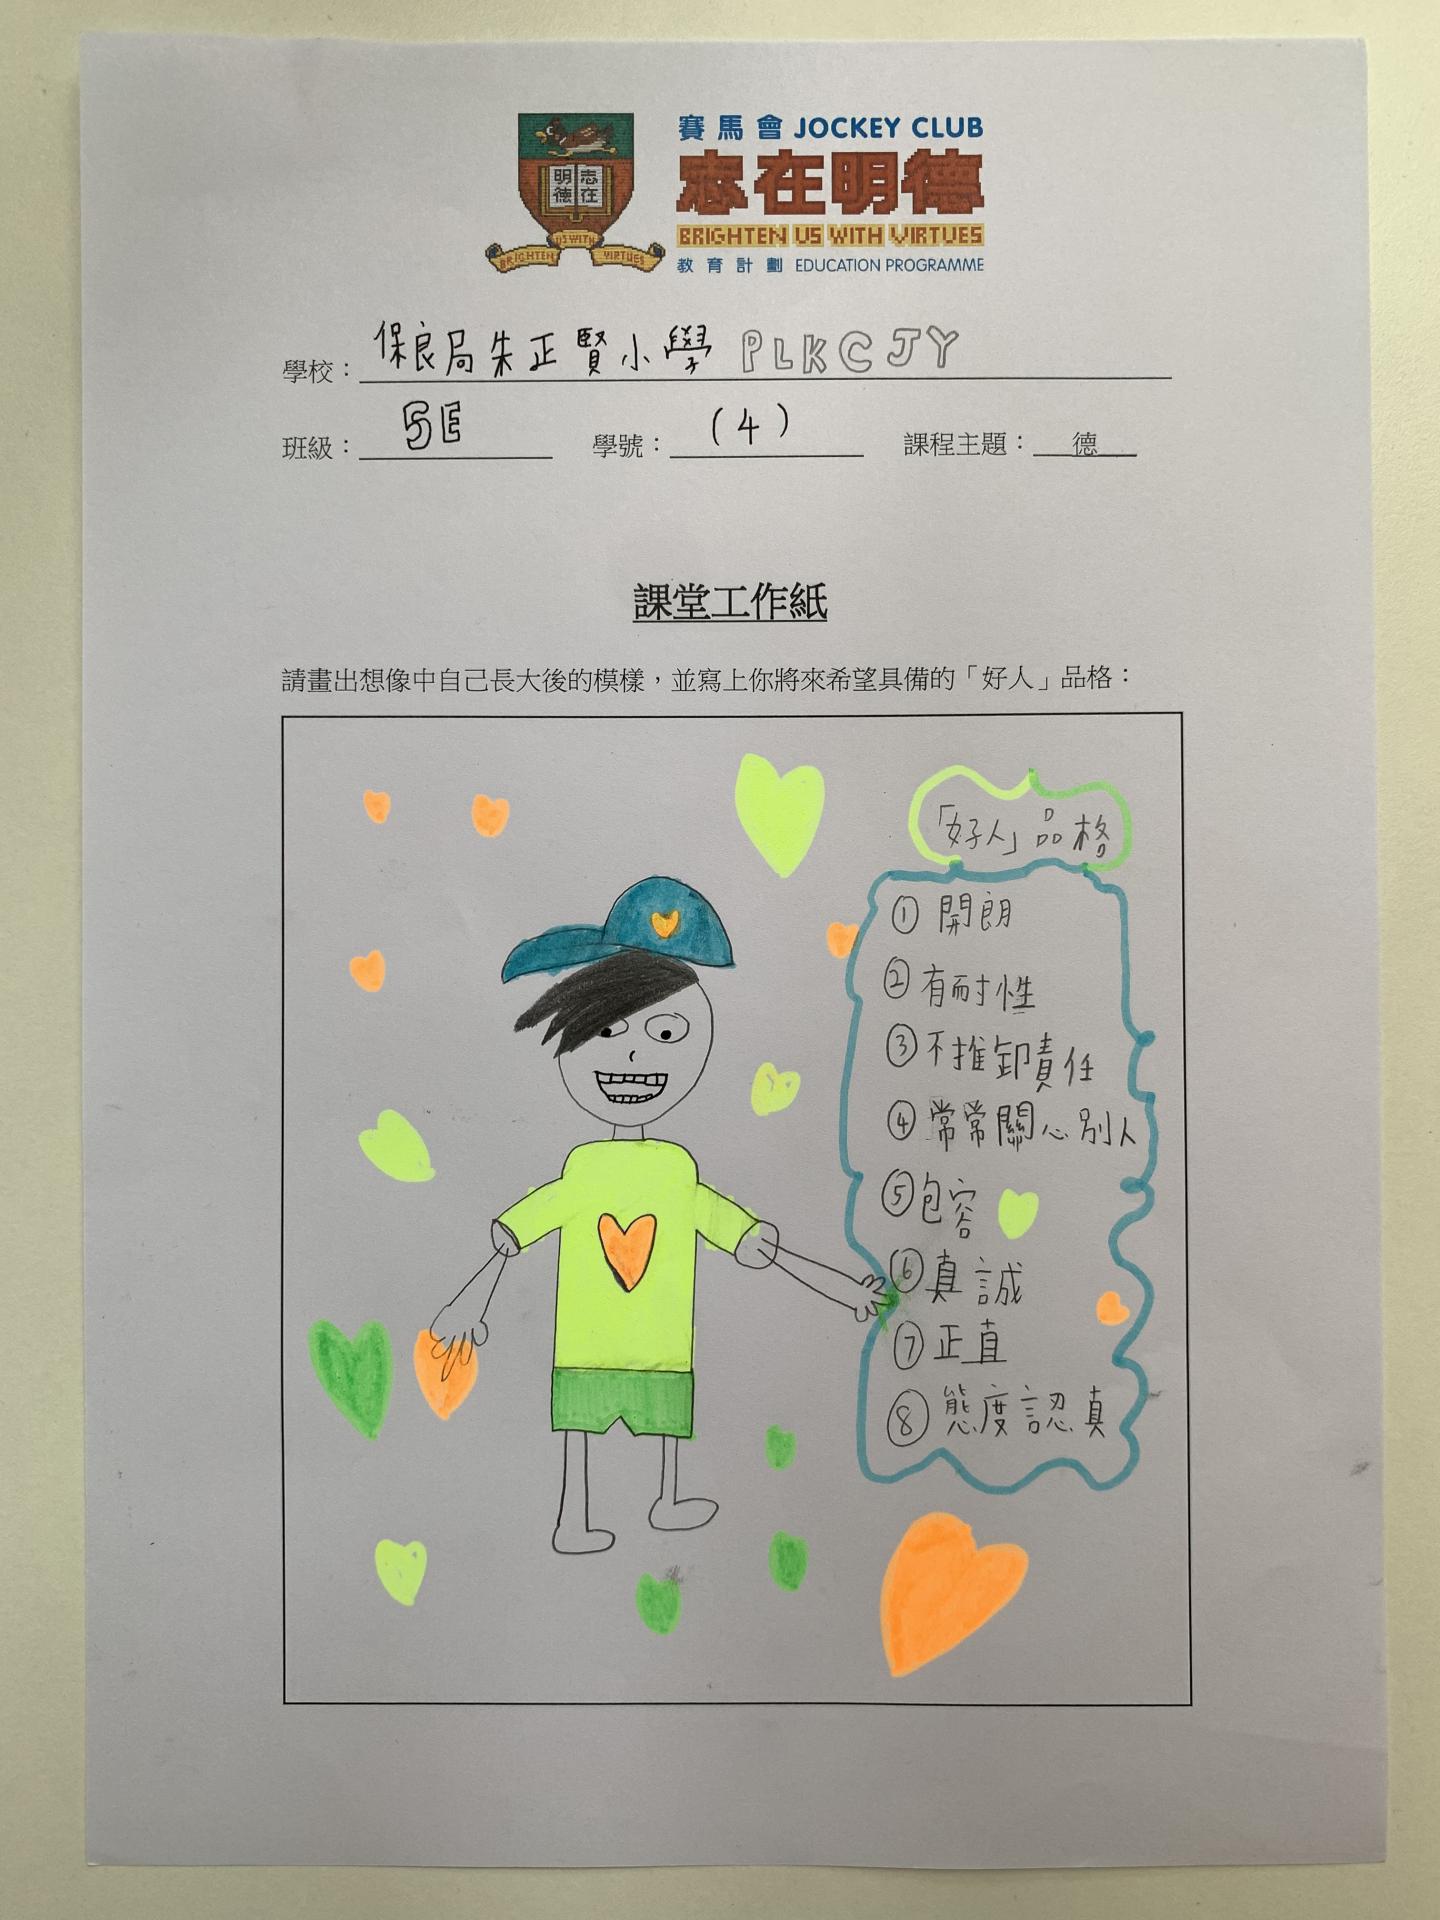 賽馬會 JOCKEY CLUB
志在明德
BRIGHTEN US WITH VIRTUES
教育計劃 EDUCATION PROGRAMME
明德 志在
BRIGHTEN US WITH VIRTUES
學校：保良局朱正賢小學 PLKCJY
班級：5E 學號：(4) 課程主題：德
課堂工作紙
請畫出想像中自己長大後的模樣，並寫上你將來希望具備的「好人」品格：
「好人」品格
① 開朗
② 有耐性
③ 不推卸責任
④ 常常關心別人
⑤ 包容
⑥ 真誠
⑦ 正直
⑧ 態度認真